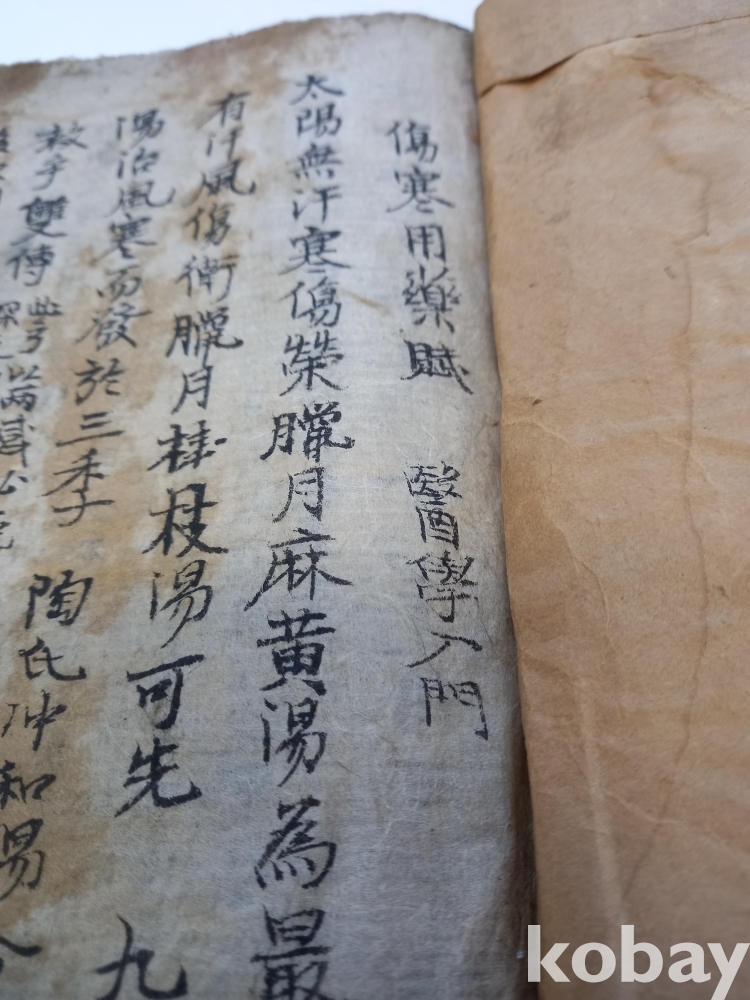 傷寒用藥賦 醫學入門
太陽無汗寒傷榮臘月麻黃湯為最
有汗風傷衛臘月桂枝湯可先 九
湯治風寒而發於三季 陶氏冲和湯
敕手雙傳
kobay